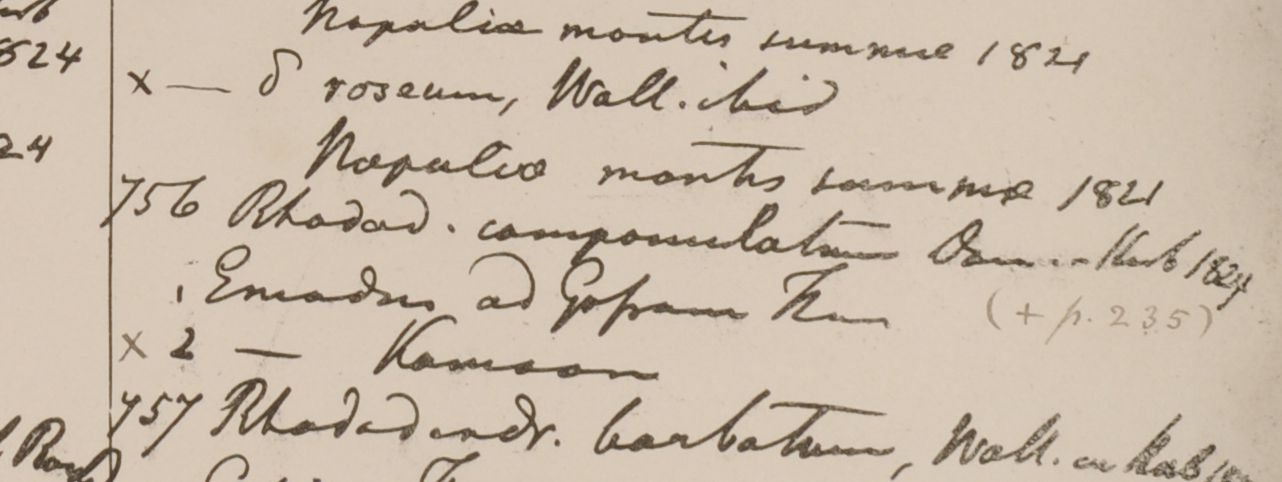 rb
Napaliæ montes summæ 1821
824
x — δ roseum, Wall. ibid
24
Napaliæ montes summæ 1821
756 Rhodod. campanulatum Don in Herb 1824
Emodus ad Gossam Than
(+ p. 235)
x 2 — Kamaon
757 Rhododendr. barbatum, Wall. in